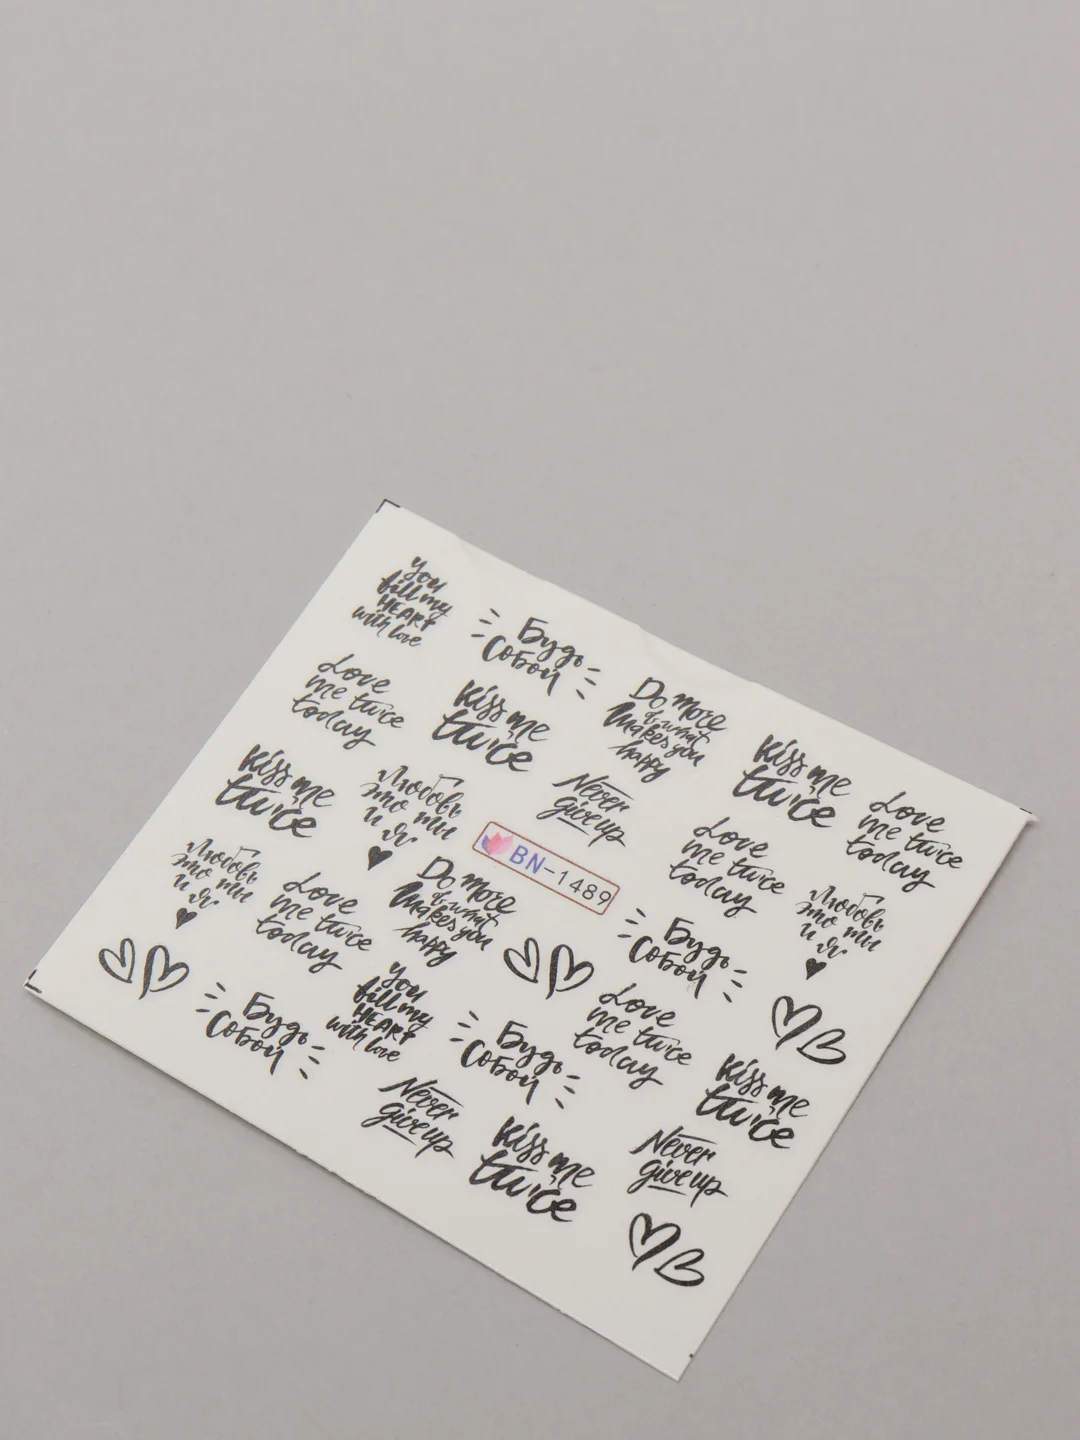 You
fill my
HEART
with love
Будь
Собой
Love
me twice
today
Kiss me
twice
Do more
of what
makes you
happy
Kiss me
twice
Love
me twice
today
Kiss me
twice
Любовь
это ты
и я
Never
give up
BN-1489
Love
me twice
today
Любовь
это ты
и я
Любовь
это ты
и я
Love
me twice
today
Do more
of what
makes you
happy
Будь
Собой
Будь
Собой
You
fill my
HEART
with love
Будь
Собой
Love
me twice
today
Kiss me
twice
Never
give up
Kiss me
twice
Never
give up